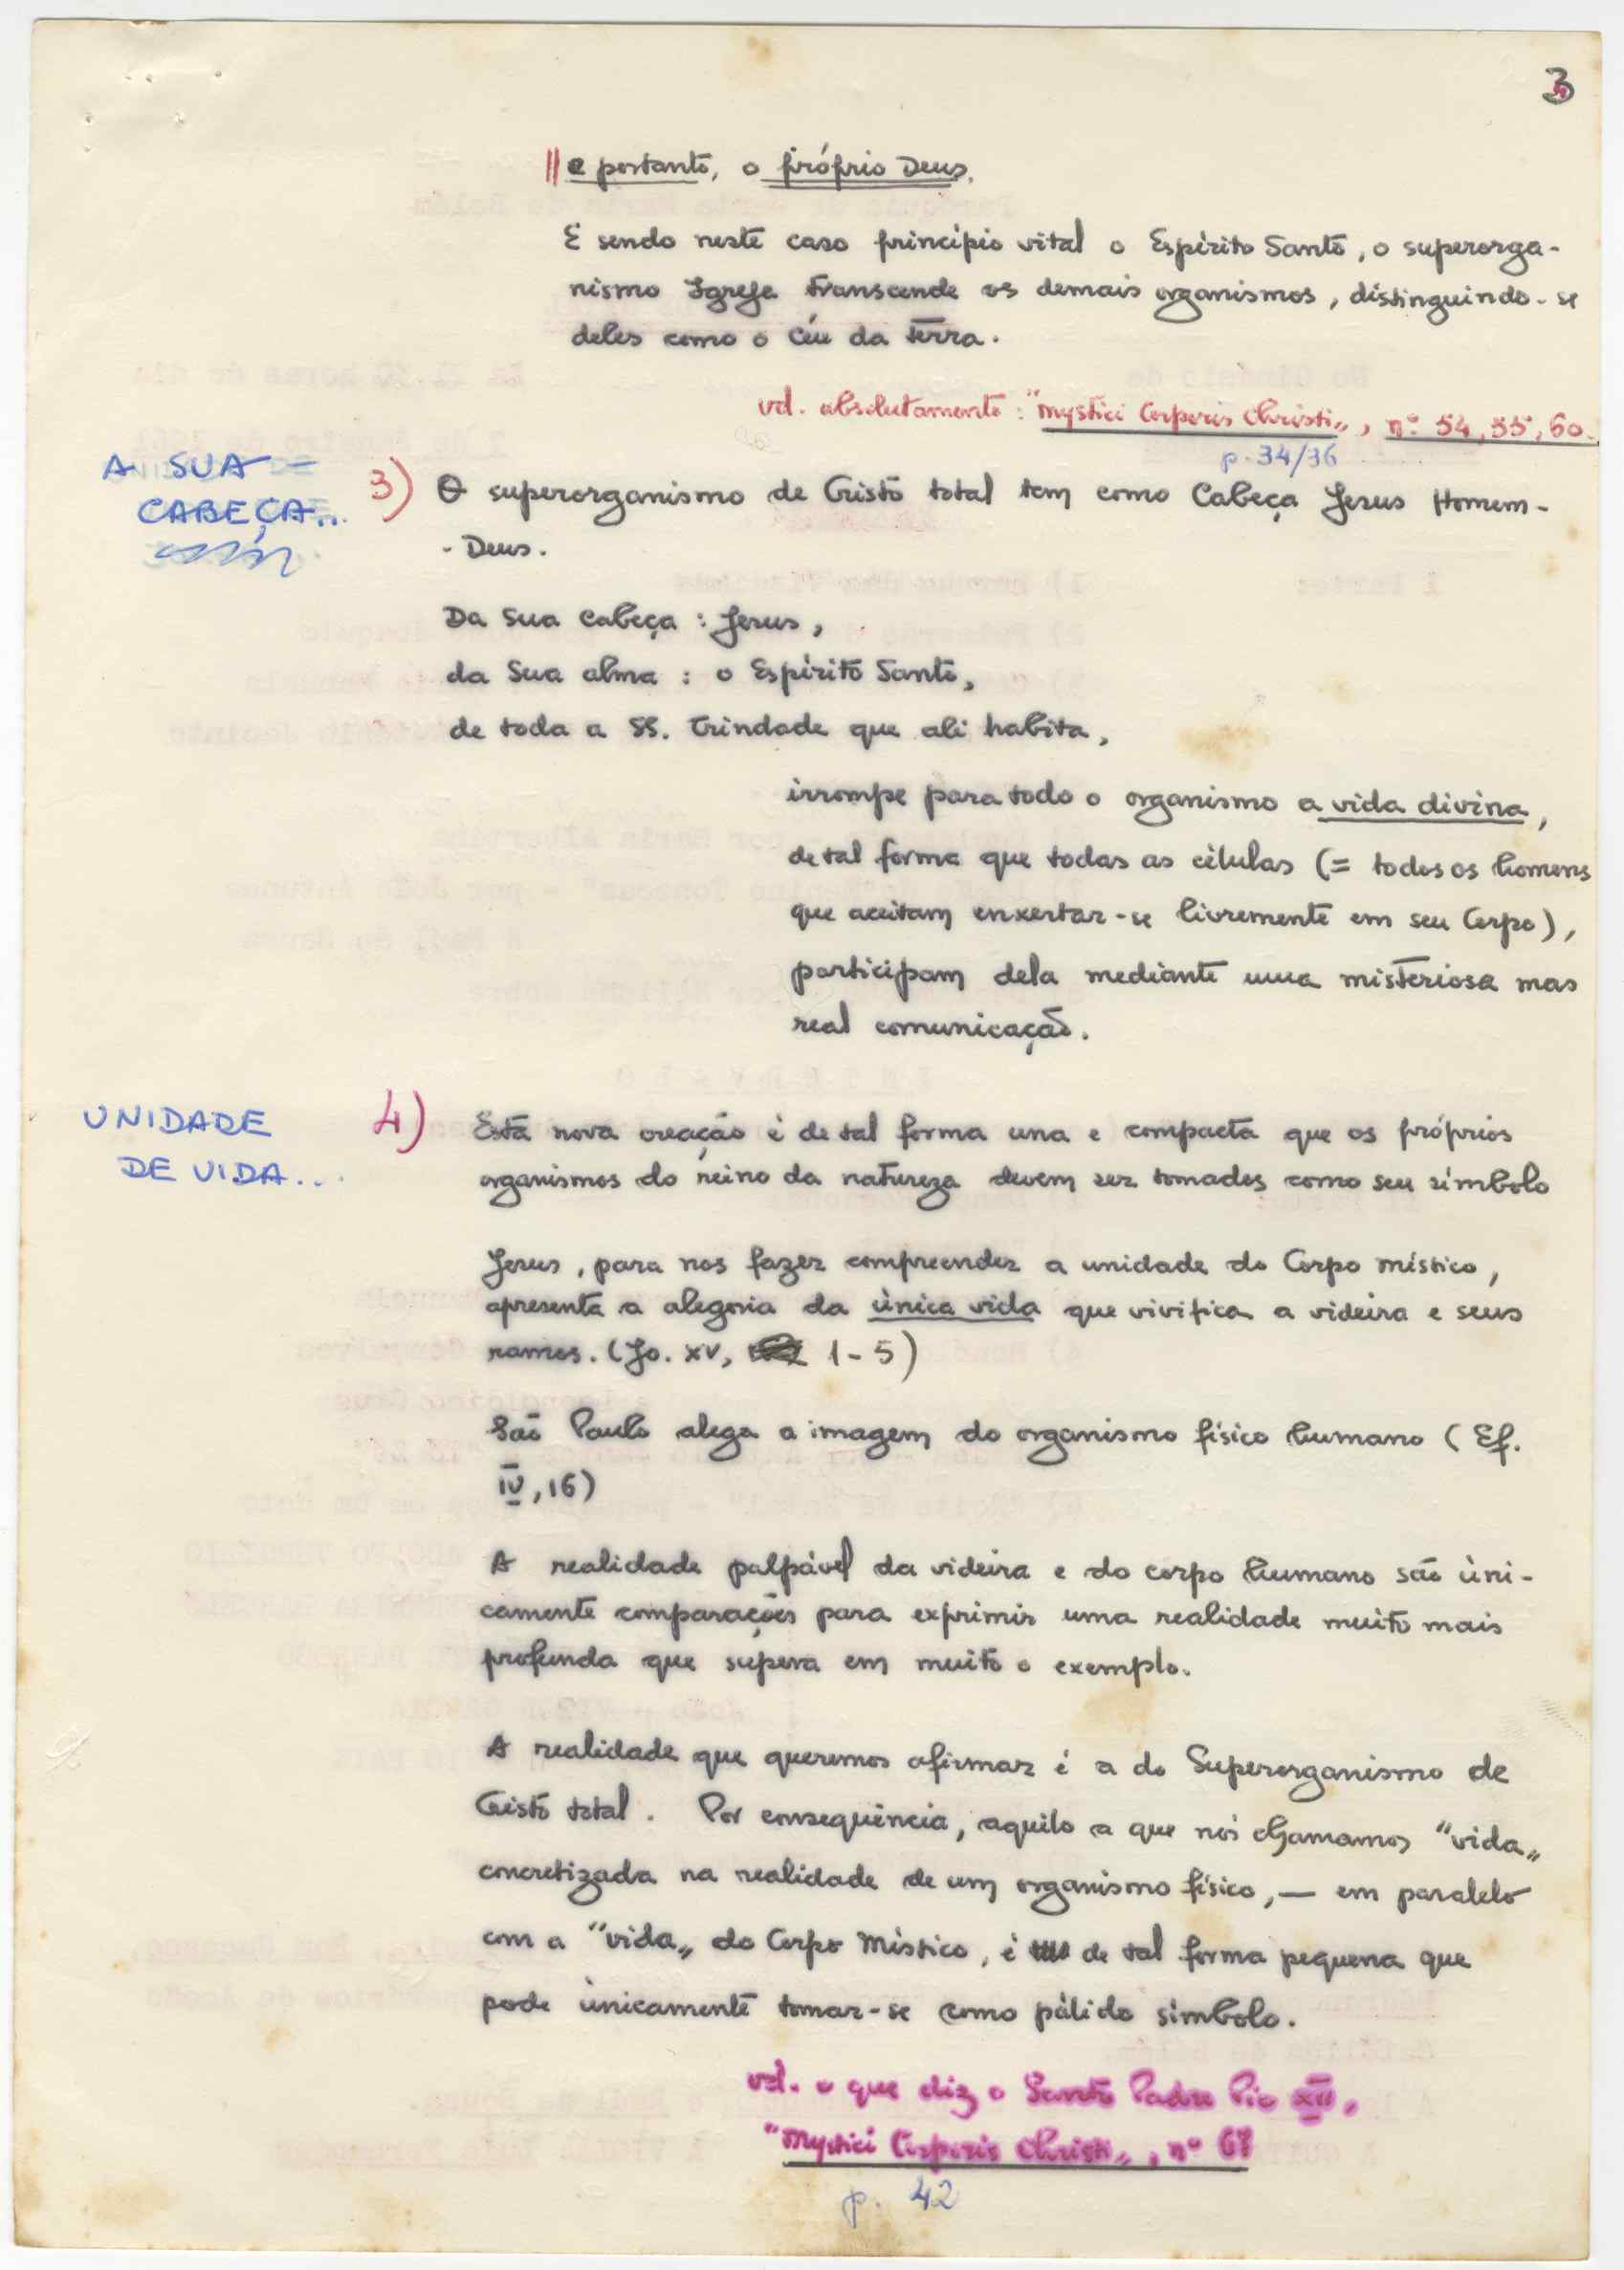 3
e portanto, o próprio Deus.
E sendo neste caso princípio vital o Espírito Santo, o superorga-
nismo Igreja transcende os demais organismos, distinguindo-se
deles como o Céu da terra.
vd. absolutamente: "Mystici Corporis Christi", nº 54, 55, 60.
p. 34/36
A SUA
CABEÇA...
3) O superorganismo de Cristo total tem como Cabeça Jesus Homem-
- Deus.
Da Sua Cabeça: Jesus,
da Sua alma: o Espírito Santo,
de toda a SS. Trindade que ali habita,
irrompe para todo o organismo a vida divina,
de tal forma que todas as células (= todos os homens
que aceitam enxertar-se livremente em seu Corpo),
participam dela mediante uma misteriosa mas
real comunicação.
UNIDADE
DE VIDA...
4) Esta nova creação é de tal forma una e compacta que os próprios
organismos do reino da natureza devem ser tomados como seu símbolo
Jesus, para nos fazer compreender a unidade do Corpo místico,
apresenta a alegoria da única vida que vivifica a videira e seus
ramos. (Jo. XV, 1-5)
São Paulo alega a imagem do organismo físico humano (Ef.
IV, 16)
A realidade palpável da videira e do corpo humano são ùni-
camente comparações para exprimir uma realidade muito mais
profunda que supera em muito o exemplo.
A realidade que queremos afirmar é a do Superorganismo de
Cristo total. Por consequência, aquilo a que nós chamamos "vida"
concretizada na realidade de um organismo físico, — em paralelo
com a "vida" do Corpo Místico, é de tal forma pequena que
pode ùnicamente tomar-se como pálido símbolo.
vd. o que diz o Santo Padre Pio XII,
"Mystici Corporis Christi", nº 67
p. 42